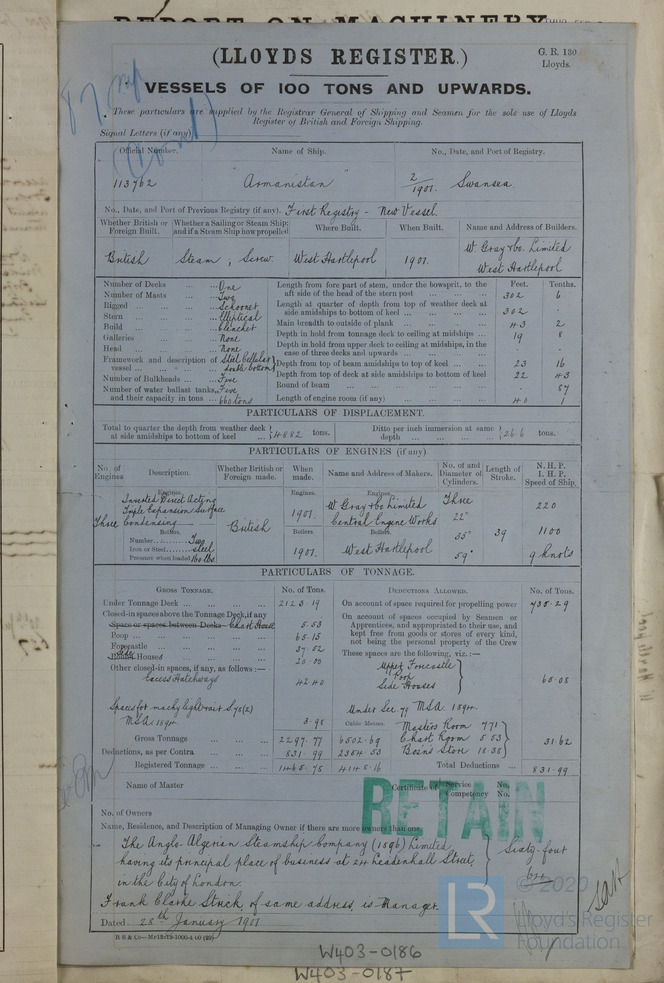 REPORT ON MACHINERY
(LLOYDS REGISTER.)
G. R. 130
Lloyds.
VESSELS OF 100 TONS AND UPWARDS.
These particulars are supplied by the Registrar General of Shipping and Seamen for the sole use of Lloyds
Register of British and Foreign Shipping.
Signal Letters (if any)
Official Number. Name of Ship. No., Date, and Port of Registry.
113762 "Armanistan" 2/1901. Swansea.
No., Date, and Port of Previous Registry (if any). First Registry - New Vessel.
Whether British or Foreign Built. Whether a Sailing or Steam Ship; and if a Steam Ship how propelled Where Built. When Built. Name and Address of Builders.
British Steam; Screw. West Hartlepool 1901. W Gray & Co. Limited
West Hartlepool
Number of Decks ... ... One
Number of Masts ... ... Two
Rigged ... ... Schooner
Stern ... ... Elliptical
Build ... ... Clencher
Galleries ... ... None
Head ... ... None
Framework and description of vessel ... ... Steel Cellular double bottom
Number of Bulkheads ... Five
Number of water ballast tanks, and their capacity in tons ... Five 660 tons
Feet. Tenths.
Length from fore part of stem, under the bowsprit, to the aft side of the head of the stern post 302 6
Length at quarter of depth from top of weather deck at side amidships to bottom of keel 302 .
Main breadth to outside of plank 43 2
Depth in hold from tonnage deck to ceiling at midships 19 8
Depth in hold from upper deck to ceiling at midships, in the case of three decks and upwards .
Depth from top of beam amidships to top of keel 23 16
Depth from top of deck at side amidships to bottom of keel 22 43
Round of beam 87
Length of engine room (if any) 40 1
PARTICULARS OF DISPLACEMENT.
Total to quarter the depth from weather deck at side amidships to bottom of keel ... 4882 tons. Ditto per inch immersion at same depth ... 26.6 tons.
PARTICULARS OF ENGINES (if any)
No. of Engines Description. Whether British or Foreign made. When made. Name and Address of Makers. No. of and Diameter of Cylinders. Length of Stroke. N. H. P.
I. H. P.
Speed of Ship.
Engines. Engines. Engines.
Inverted Direct Acting
Triple Expansion Surface
Three Condensing British 1901. W Gray & Co Limited
Central Engine Works Three
22"
35"
59" 39 220
1100
9 knots
Boilers. Boilers Boilers.
Number Two
Iron or Steel steel
Pressure when loaded 160 lbs
1901. West Hartlepool
PARTICULARS OF TONNAGE.
GROSS TONNAGE. No. of Tons. DEDUCTIONS ALLOWED. No. of Tons.
Under Tonnage Deck 2123.19
Closed-in spaces above the Tonnage Deck, if any
Space or spaces between Decks Chart House 5.53
Poop 65.15
Forecastle 37.52
Side Houses 20.00
Other closed-in spaces, if any, as follows:—
Excess Hatchways 42.40
Spaces for machy light & air S 78(2)
MSA 1894 3.98
Gross Tonnage 2297.77
Deductions, as per Contra 831.99
Registered Tonnage 1465.78
Cubic Metres.
6502.69
2354.53
On account of space required for propelling power 735.29
On account of spaces occupied by Seamen or
Apprentices, and appropriated to their use, and
kept free from goods or stores of every kind,
not being the personal property of the Crew
These spaces are the following, viz.:—
Upper Forecastle
Poop
Side Houses 65.08
Under Sec 79 MSA. 1894.
Masters Room 7.71
Chart Room 5.53
Bosn's Store 18.38 31.62
Total Deductions 831.99
Name of Master
Certificate of Service No.
Competency No.
RETAIN
No. of Owners
Name, Residence, and Description of Managing Owner if there are more owners than one.
The Anglo-Algerian Steamship Company (1896) Limited,
having its principal place of business at 24 Leadenhall Street,
in the City of London.
Sixty-four
Frank Clarke Strick of same address, is Manager.
Dated 28th January 1901
© 2020
LR
Lloyd's Register
Foundation
W403-0186
W403-0187